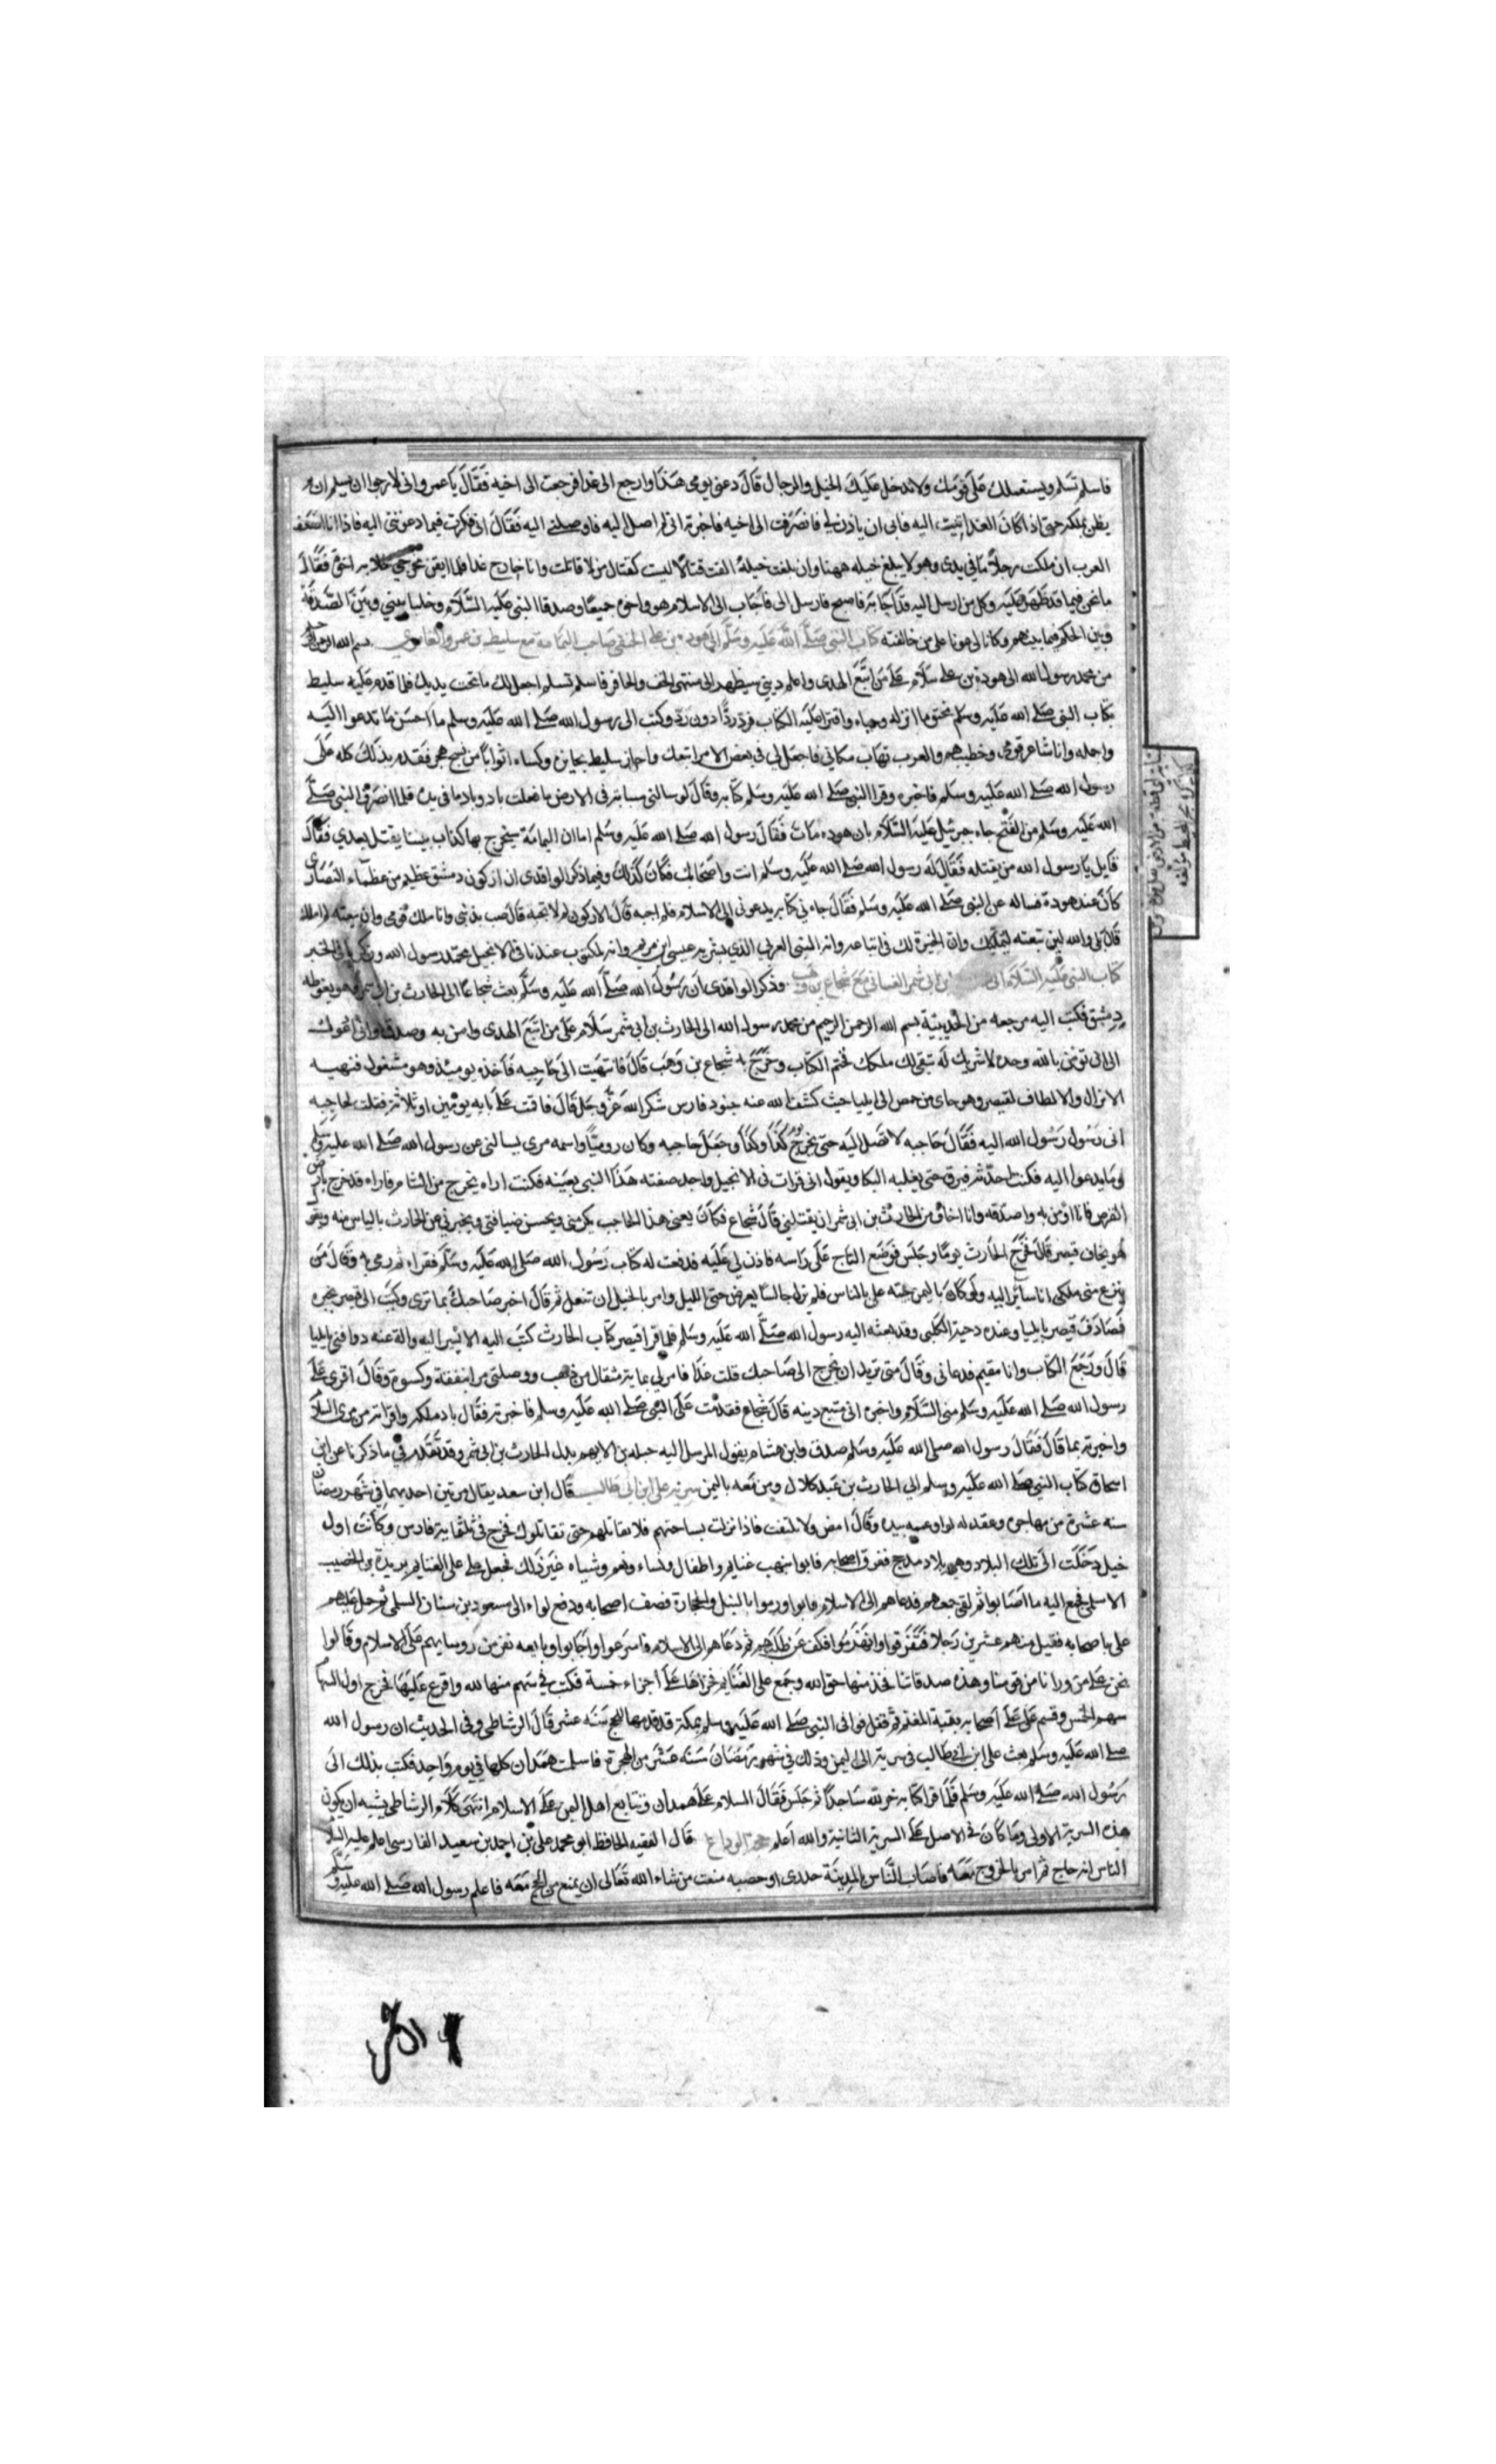 فاسلم تسلم ويستعملك على قومك ولا تدخل عليك الخيل والرجال قال دعني يومي هذا وارجع الى غدا فرجعت الى اخيه فقال يا عمرو اني لارجو ان يسلم ان لم
يظن بملكه حتى اذا كان الغد اتيت اليه فابى ان ياذن لي فانصرفت الى اخيه فاخبرته اني لم اصل اليه فاوصلني اليه فقال اني فكرت فيما دعوتني اليه فاذا انا اضعف
العرب ان ملكت رجلا ما في يدي وهو لا يبلغ خيله ههنا وان بلغت خيله الفت قتالا ليست كقتال من لاقا قلت وانا خارج غدا فلما ايقن بمخرجي خلا به اخوه فقال
ما نحن فيما قد ظهر عليه وكل من ارسل اليه قد اجابه فاصبح فارسل الى فاجاب الى الاسلام هو واخوه جميعا وصدقا النبي عليه السلام وخليا بيني وبين الصدقة
وبين الحكم فيما بينهم وكانا لي عونا على من خالفني كتاب النبي صلى الله عليه وسلم الى هوذة بن علي الحنفي صاحب اليمامة مع سليط بن عمرو العامري بسم الله الرحمن الرحيم
من محمد رسول الله الى هوذة بن علي سلام على من اتبع الهدى واعلم ديني سيظهر الى منتهى الخف والحافر فاسلم تسلم اجعل لك ما تحت يديك فلما قدم عليه سليط
بكتاب النبي صلى الله عليه وسلم مختوما انزله وحباه واقترا عليه الكتاب فرد ردا دون رد وكتب الى رسول الله صلى الله عليه وسلم ما احسن ما تدعوا اليه
واجمله وانا شاعر قومي وخطيبهم والعرب تهاب مكاني فاجعل لي في بعض الامر اتبعك واجاز سليط بجايزة وكساه اثوابا من نسج هجر فقدم بذلك كله على
رسول الله صلى الله عليه وسلم فاخبره وقرا النبي صلى الله عليه وسلم كتابه وقال لو سالني سيابة في الارض ما فعلت باد وباد ما في يده فلما انصرف النبي صلى
الله عليه وسلم من الفتح جاءه جبرئيل عليه السلام بان هوذه مات فقال رسول الله صلى الله عليه وسلم اما ان اليمامة سيخرج بها كذاب يتنبا يقتل بعدي فقال
قايل يا رسول الله من يقتله فقال له رسول الله صلى الله عليه وسلم انت واصحابك فكان كذلك وفيما ذكر الواقدي ان اركون دمشق عظيم من عظماء النصارى
كان عند هوذة فساله عن النبي صلى الله عليه وسلم فقال جاءني كتابه يدعوني الى الاسلام فلم اجبه قال الاركون لم لا تجبه قال ضننت بديني وانا ملك قومي وان تبعته لم املك
قال بلى والله لئن تبعته ليملكنك وان الخيرة لك في اتباعه وانه النبي العربي الذي بشر به عيسى ابن مريم وانه لمكتوب عندنا في الانجيل محمد رسول الله
كتاب النبي عليه السلام الى بن ابي شمر الغساني مع شجاع بن وهب وذكر الواقدي ان رسول الله صلى الله عليه وسلم بعث شجاعا الى الحارث بن ابي شمر وهو بغوطة
دمشق فكتب اليه مرجعه من الحديبية بسم الله الرحمن الرحيم من محمد رسول الله الى الحارث بن ابي شمر سلام على من اتبع الهدى وامن به وصدق واني ادعوك
الى ان تؤمن بالله وحده لا شريك له تبقى لك ملكك فختم الكتاب وخرج به شجاع بن وهب قال فانتهيت الى حاجبه فاخذه يومئذ وهو مشغول فتهيه
الانزال والالطاف لقيصر وهو جاي من حمص الى ايليا حيث كشف الله عنه جنود فارس شكرا لله عز وجل قال فاقمت على بابه يومين او ثلاثة فقلت لحاجبه
اني رسول رسول الله اليه فقال حاجبه لا تصل اليه حتى يخرج يوم كذا وكذا وجعل حاجبه وكان روميا واسمه مرى يسالني عن رسول الله صلى الله عليه وسلم
وما يدعوا اليه فكنت احدثه فيرق حتى يغلبه البكا ويقول اني قرات في الانجيل واجد صفته هذا النبي بعينه فكنت اراه يخرج من الشام فاراه قد خرج بارض
القرض فانا اؤمن به واصدقه وانا اخاف من الحارث بن ابي شمر ان يقتلني قال شجاع فكان يعني هذا الحاجب يكرمني ويحسن ضيافتي ويخبرني عن الحارث بالياس منه ويقول
هو يخاف قيصر قال فخرج الحارث يوما وجلس فوضع التاج على راسه فاذن لي عليه فدفعت له كتاب رسول الله صلى الله عليه وسلم فقراه ثم رمى به وقال من
ينزع مني ملكي انا ساير اليه ولو كان باليمن جئته علي بالناس فلم يزل جالسا يعرض حتى الليل وامر بالخيل ان تنعل ثم قال اخبر صاحبك بما ترى وكتب الى قيصر يخبره
فصادف قيصر بايليا وعنده دحية الكلبي وقد بعثه اليه رسول الله صلى الله عليه وسلم فلما قرا قيصر كتاب الحارث كتب اليه الا تسر اليه واله عنه ووافني بايليا
قال ورجع الكتاب وانا مقيم فدعاني وقال متى تريد ان تخرج الى صاحبك قلت غدا فامر لي بماية مثقال من ذهب ووصلني مرا بنفقة وكسوة وقال اقرى على
رسول الله صلى الله عليه وسلم مني السلام واخبره اني متبع دينه قال شجاع فقدمت على النبي صلى الله عليه وسلم فاخبرته فقال باد ملكه واقراته من مرى السلام
واخبرته بما قال فقال رسول الله صلى الله عليه وسلم صدق وابن هشام يقول المرسل اليه جبله بن الايهم بدل الحارث بن ابي شمر وقد تقدم في ما ذكرنا عن ابن
اسحاق كتاب النبي صلى الله عليه وسلم الى الحارث بن عبد كلال ومن معه باليمن سرية علي ابن ابي طالب قال ابن سعد يقال مرتين احديهما في شهر رمضان
سنه عشرة من مهاجره وعقد له لواء وعممه بيده وقال امض ولا تلتفت فاذا نزلت بساحتهم فلا تقاتلهم حتى تقاتلوك فخرج في ثلثماية فارس وكانت اول
خيل دخلت الى تلك البلاد وهي بلاد مذحج ففرق اصحابه فاتوا بنهب غنايم واطفال ونساء ونعم وشياه غير ذلك فجعل علي على الغنايم بريدة بن الحصيب
الاسلمي فجمع اليه ما اصابوا ثم لقي جمعهم فدعاهم الى الاسلام فابوا ورموا بالنبل والحجارة فصف اصحابه ودفع لواءه الى مسعود بن سنان السلمي ثم حمل عليهم
علي باصحابه فقتل منهم عشرين رجلا فتفرقوا وانهزموا فكف عن طلبهم ثم دعاهم الى الاسلام فاسرعوا واجابوا وبايعه نفر من روسايهم على الاسلام وقالوا
نحن على من ورانا من قومنا وهذه صدقاتنا فخذ منها حق الله وجمع علي الغنايم فجزاها على اجزاء خمسة فكتب في سهم منها لله واقرع عليها فخرج اول السهام
سهم الخمس وقسم علي على اصحابه بقية المغنم ثم قفل فوافى النبي صلى الله عليه وسلم بمكة قد قدمها للحج سنة عشر قال الرشاطي وفي الحديث ان رسول الله
صلى الله عليه وسلم بعث علي ابن ابي طالب في سرية الى اليمن وذلك في شهر رمضان سنة عشر من الهجرة فاسلمت همدان كلها في يوم واحد فكتب بذلك الى
رسول الله صلى الله عليه وسلم فلما قرا كتابه خر لله ساجدا ثم جلس فقال السلام على همدان وتتابع اهل اليمن على الاسلام انتهى كلام الرشاطي يشبه ان يكون
هذه السرية الاولى وما كان في الاصل على السرية الثانية والله اعلم حجة الوداع قال الفقيه الحافظ ابو محمد علي بن احمد بن سعيد الفارسي اعلم عليه السلام
الناس انه حاج ثم امر بالخروج معه فاصاب الناس بالمدينة جدري او حصبه منعت من شاء الله تعالى ان يمنع من الحج معه فاعلم رسول الله صلى الله عليه وسلم